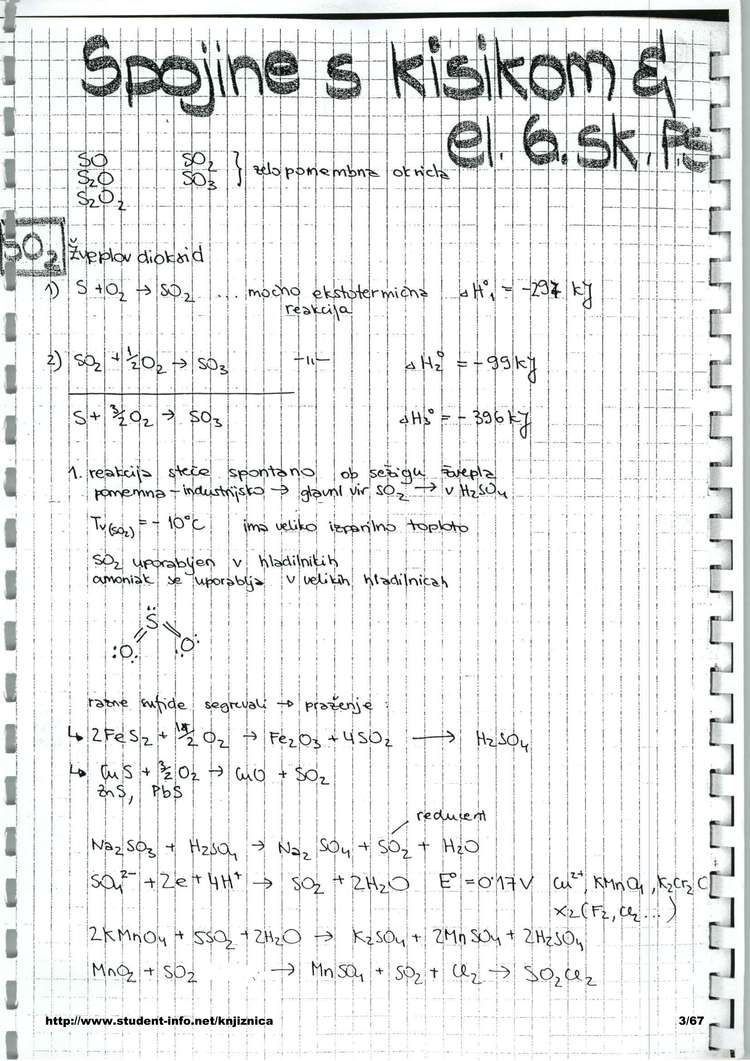 Spojine s kisikom &
el. 6. sk. PS
SO SO₂ } zelo pomembna oksida
S₂O SO₃
S₂O₂
SO₂ Žveplov dioksid
1) S + O₂ → SO₂ ... močno ekstotermična ΔH°₁ = -297 kJ
reakcija
2) SO₂ + 1/2 O₂ → SO₃ -11- ΔH₂° = -99 kJ
S + 3/2 O₂ → SO₃ ΔH₃° = -396 kJ
1. reakcija steče spontano ob sežigu žvepla
pomemna - industrijsko → glavni vir SO₂ → v H₂SO₄
Tv(SO₂) = -10°C ima veliko izparilno toploto
SO₂ uporabljen v hladilnikih
amoniak se uporablja v velikih hladilnicah
S
:O: O:
razne sulfide segrevali → praženje :
↳ 2FeS₂ + /2 O₂ → Fe₂O₃ + 4SO₂ → H₂SO₄
↳ CuS + 3/2 O₂ → CuO + SO₂
ZnS, PbS
reducent
Na₂SO₃ + H₂SO₄ → Na₂SO₄ + SO₂ + H₂O
SO₄²⁻ + 2e + 4H⁺ → SO₂ + 2H₂O E° = 0'17 V Cu²⁺, KMnO₄, K₂Cr₂O
X₂ (F₂, Cl₂ ...)
2KMnO₄ + 5SO₂ + 2H₂O → K₂SO₄ + 2MnSO₄ + 2H₂SO₄
MnO₂ + SO₂ → MnSO₄ + SO₂ + Cl₂ → SO₂Cl₂
http://www.student-info.net/knjiznica 3/67